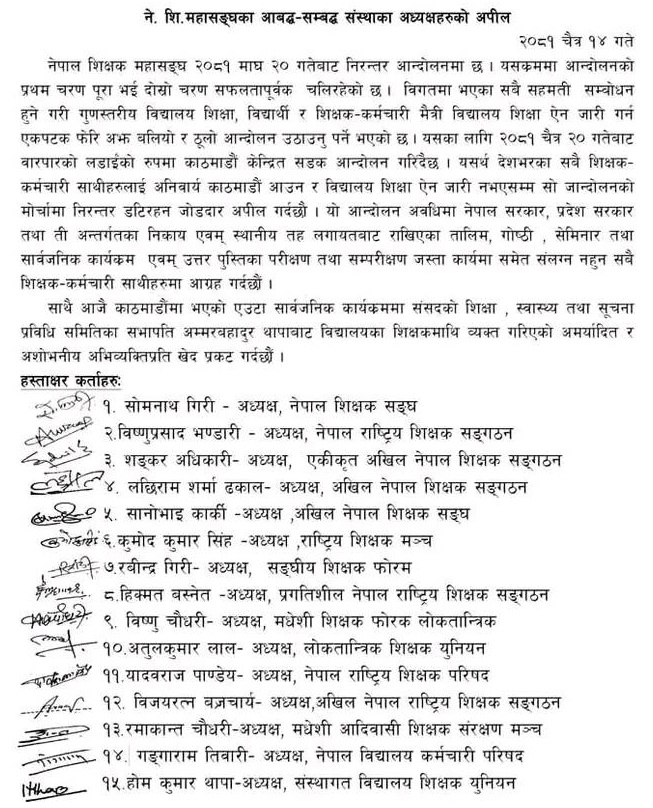 ने. शि.महासङघका आबद्ध-सम्बद्ध संस्थाका अध्यक्षहरुको अपील
२०८१ चैत्र १४ गते
नेपाल शिक्षक महासङघ २०८१ माघ २० गतेबाट निरन्तर आन्दोलनमा छ । यसक्रममा आन्दोलनको
प्रथम चरण पूरा भई दोस्रो चरण सफलतापूर्वक चलिरहेको छ । विगतमा भएका सबै सहमती सम्बोधन
हुने गरी गुणस्तरीय विद्यालय शिक्षा, विद्यार्थी र शिक्षक-कर्मचारी मैत्री विद्यालय शिक्षा ऐन जारी गर्न
एकपटक फेरि अझ बलियो र ठूलो आन्दोलन उठाउनु पर्ने भएको छ । यसका लागि २०८१ चैत्र २० गतेबाट
वारपारको लडाईंको रुपमा काठमाडौं केन्द्रित सडक आन्दोलन गरिदैछ । यसर्थ देशभरका सबै शिक्षक-
कर्मचारी साथीहरुलाई अनिवार्य काठमाडौं आउन र विद्यालय शिक्षा ऐन जारी नभएसम्म सो जान्दोलनको
मोर्चामा निरन्तर डटिरहन जोडदार अपील गर्दछौ । यो आन्दोलन अवधिमा नेपाल सरकार, प्रदेश सरकार
तथा ती अन्तर्गतका निकाय एवम् स्थानीय तह लगायतबाट राखिएका तालिम, गोष्ठी , सेमिनार तथा
सार्वजनिक कार्यक्रम एवम् उत्तर पुस्तिका परीक्षण तथा सम्परीक्षण जस्ता कार्यमा समेत संलग्न नहुन सबै
शिक्षक-कर्मचारी साथीहरुमा आग्रह गर्दछौं ।
साथै आजै काठमाडौंमा भएको एउटा सार्वजनिक कार्यक्रममा संसदको शिक्षा , स्वास्थ्य तथा सूचना
प्रविधि समितिका सभापति अम्मरबहादुर थापाबाट विद्यालयका शिक्षकमाथि व्यक्त गरिएको अमर्यादित र
अशोभनीय अभिव्यक्तिप्रति खेद प्रकट गर्दछौं ।
हस्ताक्षर कर्ताहरु:
१. सोमनाथ गिरी - अध्यक्ष, नेपाल शिक्षक सङ्घ
२.विष्णुप्रसाद भण्डारी - अध्यक्ष, नेपाल राष्ट्रिय शिक्षक सङ्गठन
३. शङ्कर अधिकारी- अध्यक्ष, एकीकृत अखिल नेपाल शिक्षक सङ्गठन
४. लछिराम शर्मा ढकाल- अध्यक्ष, अखिल नेपाल शिक्षक सङ्गठन
५. सानोभाइ कार्की -अध्यक्ष ,अखिल नेपाल शिक्षक सङ्घ
६.कुमोद कुमार सिंह -अध्यक्ष ,राष्ट्रिय शिक्षक मञ्च
७.रवीन्द्र गिरी- अध्यक्ष, सङ्घीय शिक्षक फोरम
८.हिक्मत बस्नेत -अध्यक्ष, प्रगतिशील नेपाल राष्ट्रिय शिक्षक सङ्गठन
९. विष्णु चौधरी- अध्यक्ष, मधेशी शिक्षक फोरक लोकतान्त्रिक
१०.अतुलकुमार लाल- अध्यक्ष, लोकतान्त्रिक शिक्षक युनियन
११.यादवराज पाण्डेय- अध्यक्ष, नेपाल राष्ट्रिय शिक्षक परिषद
१२. विजयरत्न बज्रचार्य- अध्यक्ष,अखिल नेपाल राष्ट्रिय शिक्षक सङ्गठन
१३.रमाकान्त चौधरी-अध्यक्ष, मधेशी आदिवासी शिक्षक संरक्षण मञ्च
१४. गङ्गाराम तिवारी- अध्यक्ष, नेपाल विद्यालय कर्मचारी परिषद
१५.होम कुमार थापा-अध्यक्ष, संस्थागत विद्यालय शिक्षक युनियन